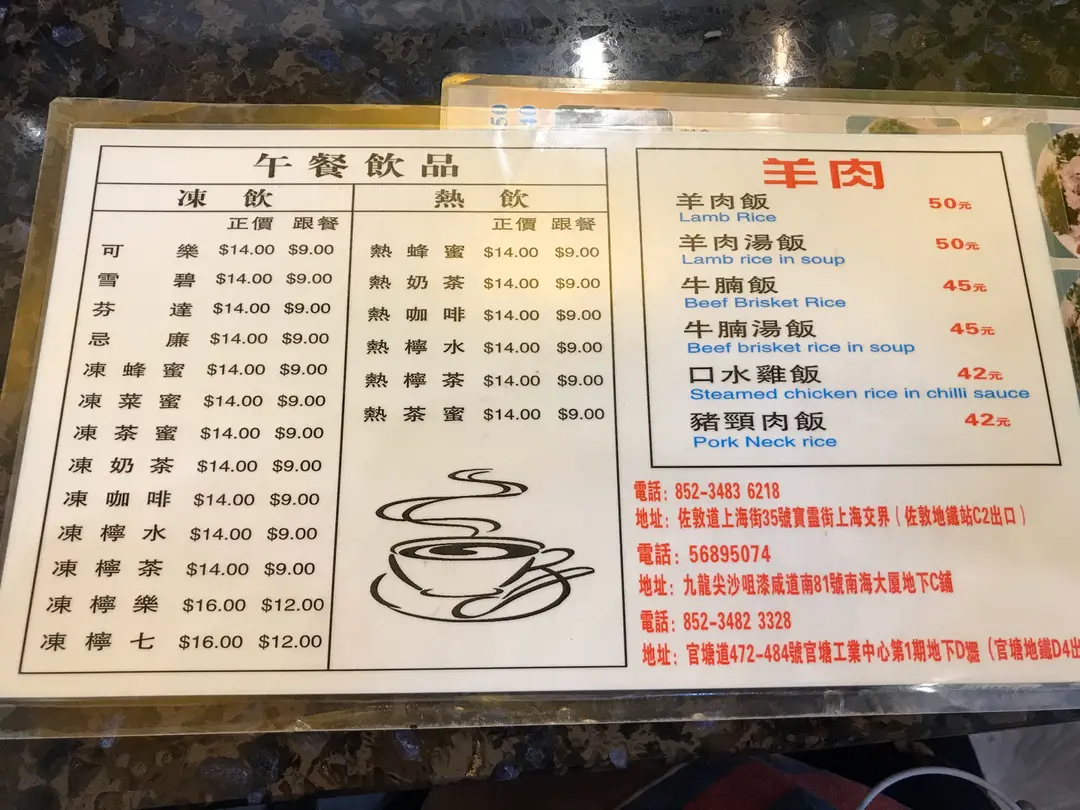 午餐飲品
凍飲
正價 跟餐
可樂 $14.00 $9.00
雪碧 $14.00 $9.00
芬達 $14.00 $9.00
忌廉 $14.00 $9.00
凍蜂蜜 $14.00 $9.00
凍菜蜜 $14.00 $9.00
凍茶蜜 $14.00 $9.00
凍奶茶 $14.00 $9.00
凍咖啡 $14.00 $9.00
凍檸水 $14.00 $9.00
凍檸茶 $14.00 $9.00
凍檸樂 $16.00 $12.00
凍檸七 $16.00 $12.00
熱飲
正價 跟餐
熱蜂蜜 $14.00 $9.00
熱奶茶 $14.00 $9.00
熱咖啡 $14.00 $9.00
熱檸水 $14.00 $9.00
熱檸茶 $14.00 $9.00
熱茶蜜 $14.00 $9.00
羊肉
羊肉飯 50元
Lamb Rice
羊肉湯飯 50元
Lamb rice in soup
牛腩飯 45元
Beef Brisket Rice
牛腩湯飯 45元
Beef brisket rice in soup
口水雞飯 42元
Steamed chicken rice in chilli sauce
豬頸肉飯 42元
Pork Neck rice
電話：852-3483 6218
地址：佐敦道上海街35號寶靈街上海交界（佐敦地鐵站C2出口）
電話：56895074
地址：九龍尖沙咀漆咸道南81號南海大厦地下C鋪
電話：852-3482 3328
地址：官塘道472-484號官塘工業中心第1期地下D（官塘地鐵D4出